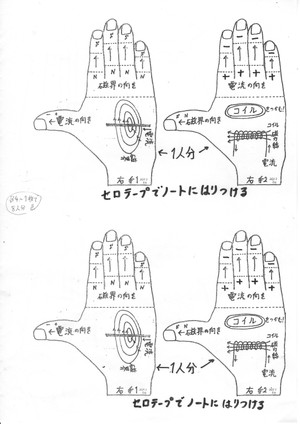 S S S S
N N N N
磁界の向き
← 電流の向き
電流
磁力線
右手1
− − − −
+ + + +
電流の向き
コイル
をつかむ!
N ← 磁界の向き
コイル
電流
右手2
← 1人分 →
セロテープでノートにはりつける
S S S S
N N N N
磁界の向き
← 電流の向き
電流
磁力線
右手1
− − − −
+ + + +
電流の向き
コイル
をつかむ!
N ← 磁界の向き
コイル
電流
右手2
← 1人分 →
セロテープでノートにはりつける